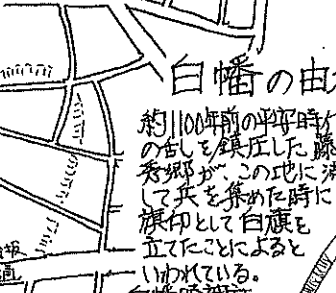 白幡の由
約1100年前の平安時代
の古しを鎮圧した藤
秀郷が、この地に滞
して兵を集めた時に
旗印として白旗を
立てたことによると
いわれている。